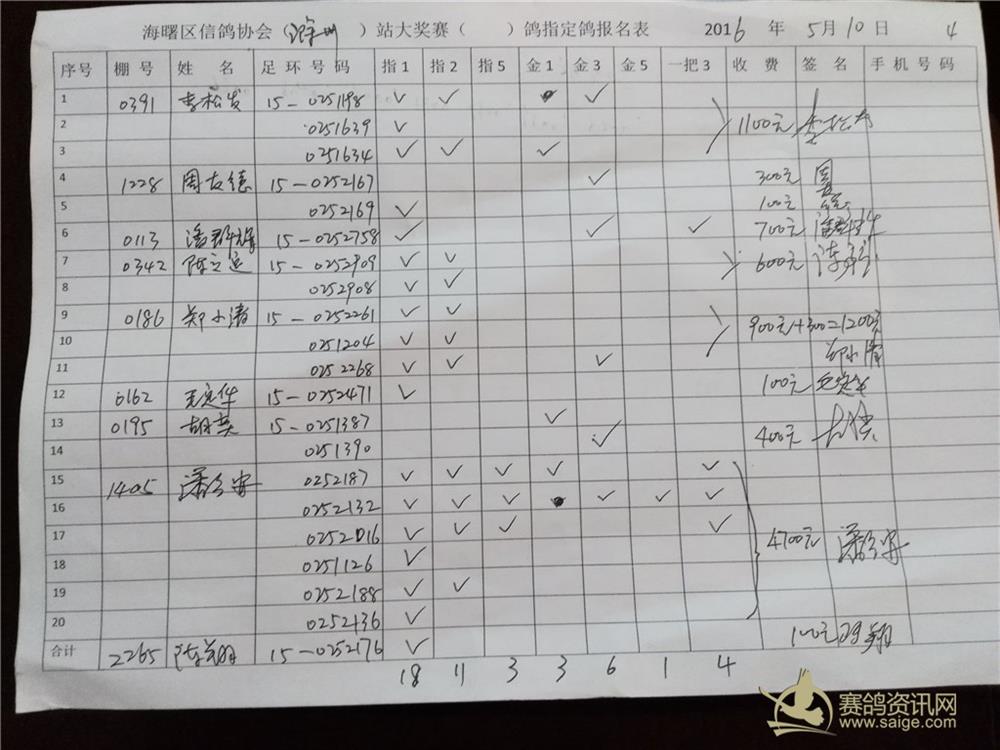 海曙区信鸽协会（徐州）站大奖赛（ ）鸽指定鸽报名表 2016 年 5月10日 4
序号 棚号 姓 名 足环号码 指1 指2 指5 金1 金3 金5 一把3 收 费 签 名 手机号码
1 0391 李松发 15-0251198 ✓ ✓ ✓
2 0251639 ✓ 1100元
3 0251634 ✓ ✓ ✓
4 1228 周友德 15-0252167 ✓ 300元
5 0252169 ✓ 100元
6 0113 潘群辉 15-0252758 ✓ ✓ ✓ 700元
7 0342 陈立运 15-0252909 ✓ ✓ 600元
8 0252908 ✓ ✓
9 0186 郑小涛 15-0252261 ✓ ✓ 900元+300=1200元
10 0251204 ✓ ✓
11 0252268 ✓ ✓ ✓
12 0162 15-0252471 ✓ 100元
13 0195 胡英 15-0251387 ✓
14 0251390 ✓ 400元
15 1405 0252187 ✓ ✓ ✓ ✓ ✓
16 0252132 ✓ ✓ ✓ ✓ ✓ ✓
17 0252016 ✓ ✓ ✓ ✓ 4700元
18 0251126 ✓
19 0252188 ✓ ✓
20 0252436 ✓
合计 2265 15-0252176 ✓ 100元
18 11 3 3 6 1 4
赛鸽资讯网
www.saige.com